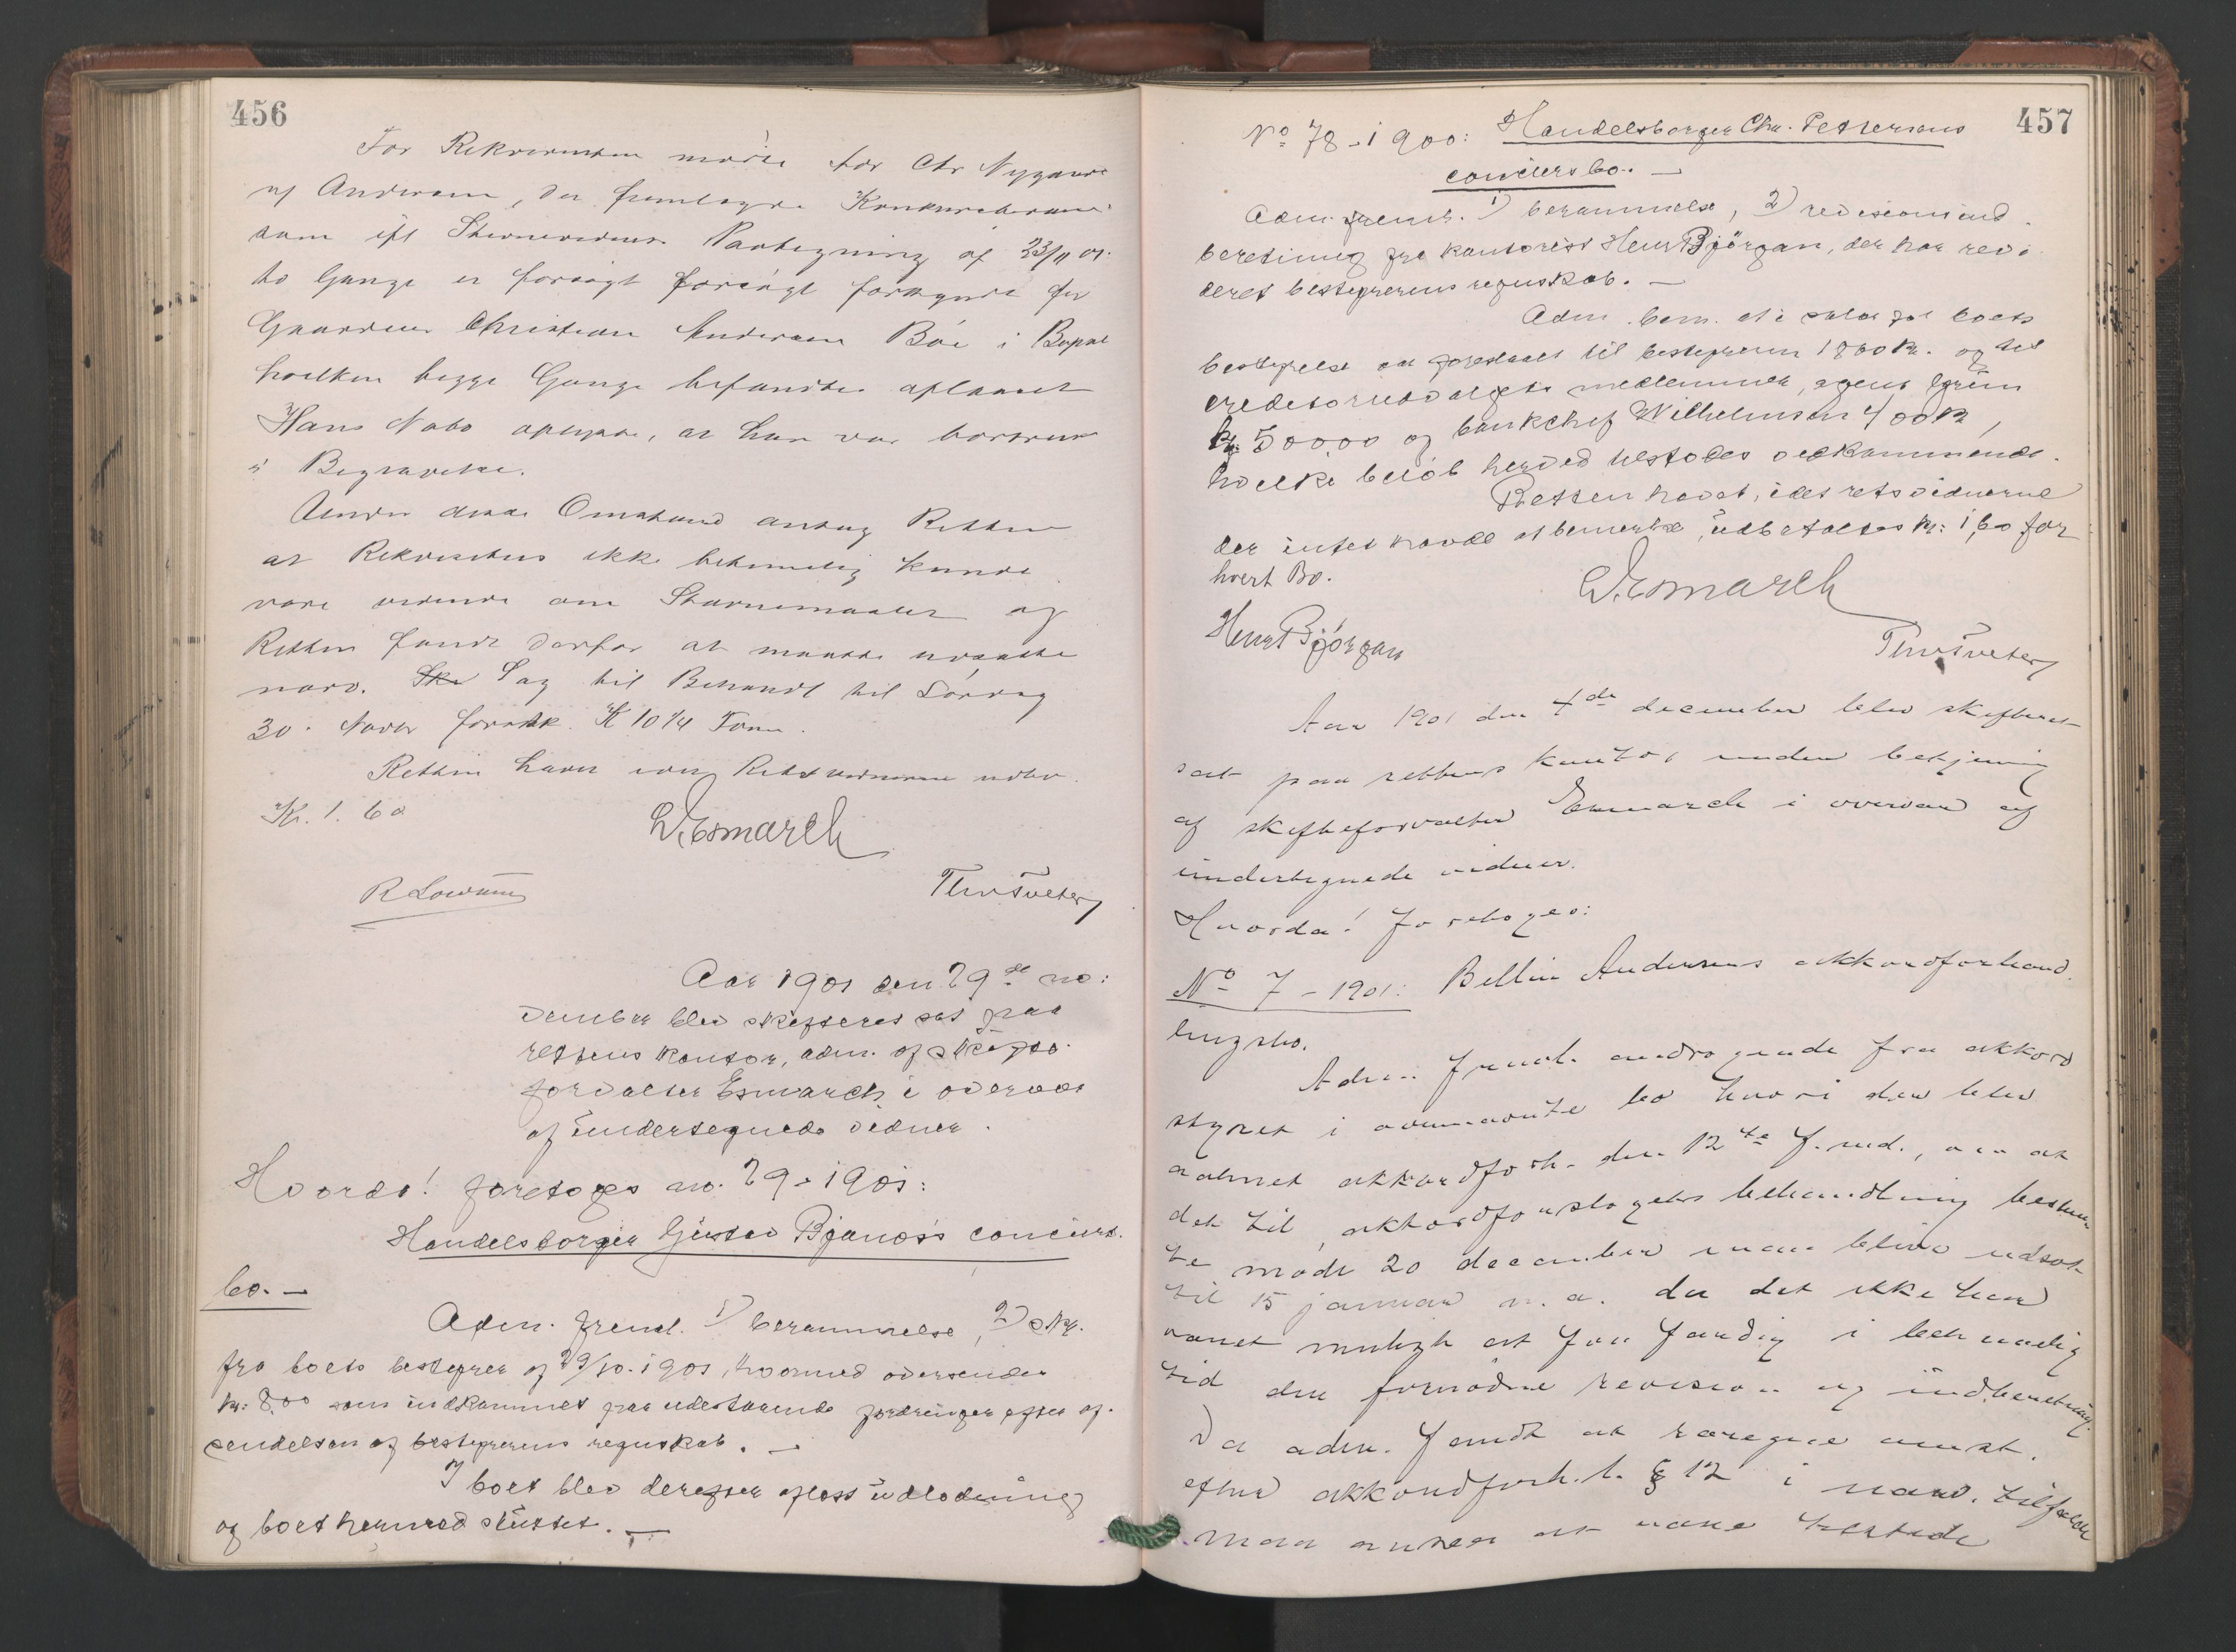 456
For Rekvirenten mødte for Chr Nygaard
af Andersen, der fremlagde Konkursbegæring
som ifl Stevnevidnets Paategning af 23/11 01.
to Gange er forsøgt forsøgt forkyndt for
Gaardeier Christian Andersen Bøe i
hvilken begge Gange befandtes aflaaset
Hans Nabo oplyste, at han var bortreist
i Begravelse.
Under disse Omstænd antog Retten
at Rekvisitus ikke betimelig kunde
være vidende om Stevnemaalet og
Retten fandt derfor at maatte udsætte
nærv. Sag til Behandl til Lørdag
30. Novbr førstk. Kl 10 1/4 Form.
Retten hævet idet Retsvidnerne udbet.
Kr. 1. 60
W. Esmarch
R Lowum
Thv Tveter
Aar 1901 den 29de no:
vember blev skifteret sat paa
rettens kontor, adm. af skifte-
forvalter Esmarch i overvær
af undertegnede vidner.
Hvorda! foretoges no. 29-1901:
Handelsborger Gustav Bjanes's concurs.
bo. —
Adm. freml. 1) berammelse, 2) skr.
fra boets bestyrer af 29/10-1901, hvormed oversendes
kr. 8.00 som indkommet paa udestaaende fordringer efter af-
sendelsen af bestyrerens regnskab. —
I boet blev derefter aflæst udlodning
og boet hermed sluttet. —
457
No 78-1900: Handelsborger Chr. Pettersens
concursbo. —
Adm. freml. 1) berammelse, 2) revisionsind-
beretning fra kontorist Henr Bjørgan, der har revi-
deret bestyrerens regnskab. —
Adm. bem. at i salær for boets
bestyrelse var foreslaaet til bestyreren 1800 kr. og til
creditorudvalgets medlemmer, agent Grün
kr. 500.00 og bankchef Wilhelmsen 400 kr,
hvilke beløb herved tilstodes vedkommende.
Retten hævet, idet retsvidnerne
der intet havde at bemærke, udbetaltes kr: 1,60 for
hvert Bo.
W. Esmarch
Henr Bjørgan
Thv Tveter
Aar 1901 den 4de december blev skifteret
sat paa rettens kontor under betjening
af skifteforvalter Esmarch i overvær af
undertegnede vidner.
Hvorda! Foretoges:
No 7-1901: Bellin Andersens akkordforhand-
lingsbo.
Adm. freml. andragende fra akkord
styret i ovennævnte bo hvori der blev
aabnet akkordforh. den 12te f. md., om at
det til akkordforslagets behandling bestem
te møde 20 december maa blive udsat
til 15 januar n. a. da det ikke har
været muligt at faa færdig i betimelig
tid den fornødne revision og indberetning.
Da adm. fandt at
efter akkordforh.l. § 12 i nærv. tilfælde
maa ansees at være tilstede